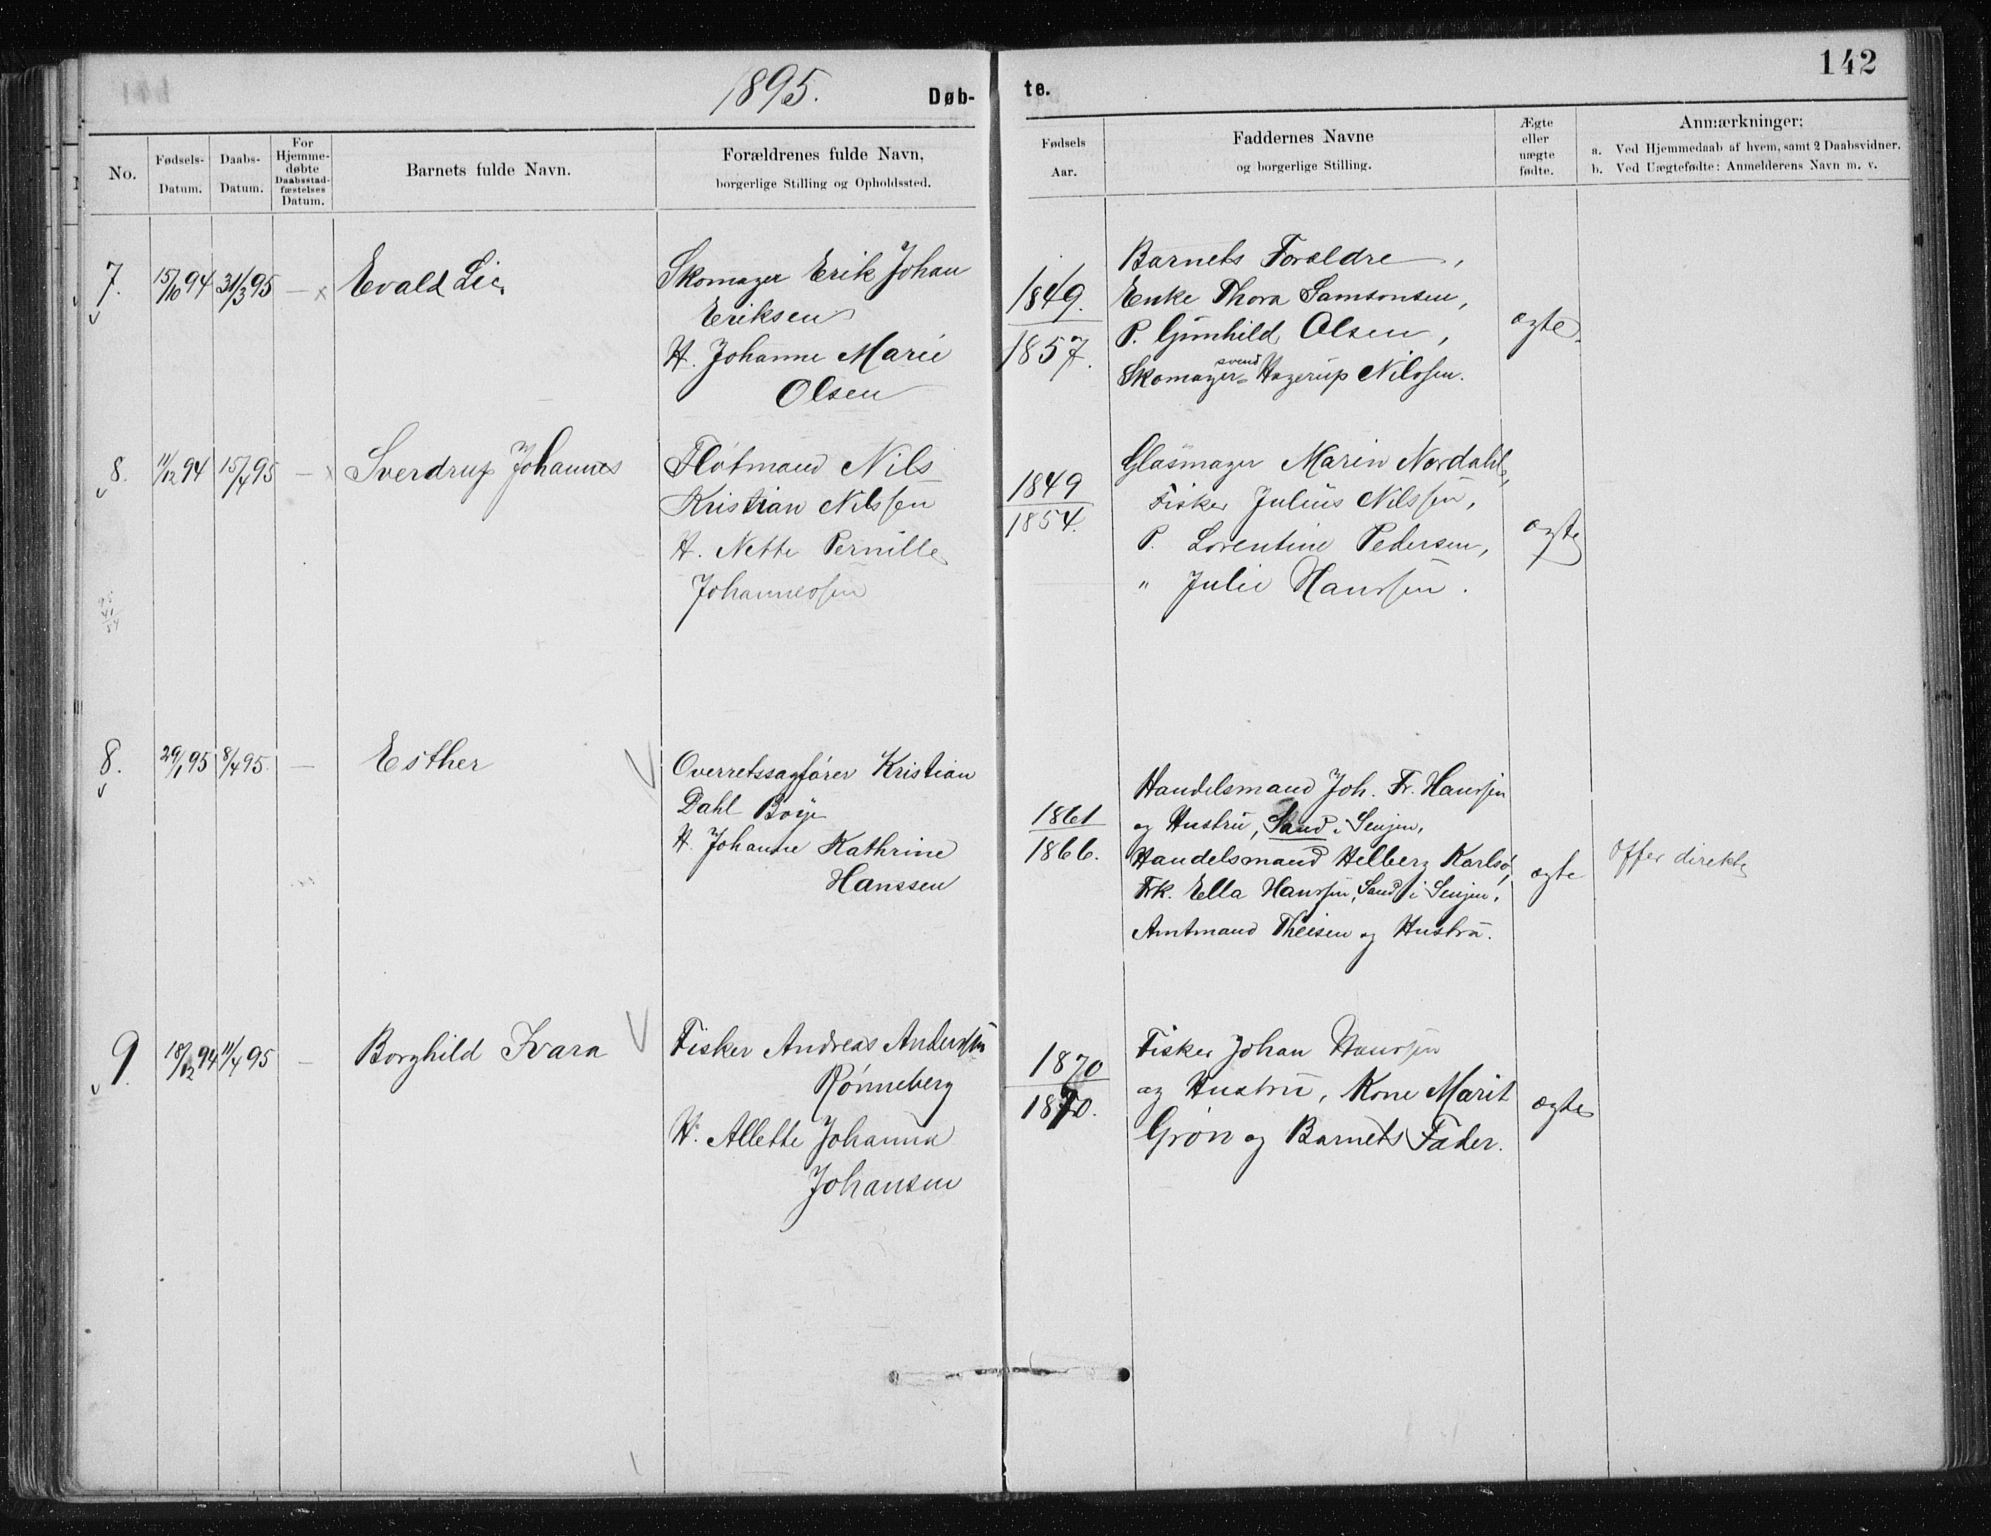 142
1895.
Døb-
te.
No.
Fødsels-
Datum.
Daabs-
Datum.
For
Hjemme-
døbte
Daabsstad-
fæstelses
Datum.
Barnets fulde Navn.
Forældrenes fulde Navn,
borgerlige Stilling og Opholdssted.
Fødsels
Aar.
Faddernes Navne
og borgerlige Stilling.
Ægte
eller
uægte
fødte.
Anmærkninger:
a. Ved Hjemmedaab af hvem, samt 2 Daabsvidner.
b. Ved Uægtefødte: Anmelderens Navn m. v.
7.
15/10 94
31/3 95
—
Evald Lie
Skomager Erik Johan
Eriksen
H. Johanne Marie
Olsen
1849.
1857.
Barnets Forældre,
Enke Thora Samsonsen,
P. Gunhild Olsen,
svend
Skomager Hagerup Nilssen.
ægte
8.
11/12 94
15/4 95
—
Sverdrup Johannes
Flótmand Nils
Kristian Nilssen
H. Nette Pernille
Johannessen
1849
1854.
Glasmager Marin Nordahl,
Fisker Julius Nilssen,
P. Lorentine Pedersen,
" Julie Hanssen.
ægte
8.
29/1 95
8/4 95.
—
Esther
Overretssagfører Kristian
Dahl Boye
H. Johanne Kathrine
Hanssen
1861
1866.
Handelsmand Joh. Fr. Hanssen
og Hustru, Sand i Senjen,
Handelsmand Helberg Karlsø,
Frk. Ella Hanssen, Sand i Senjen,
Amtmand Theisen og Hustru.
ægte
Offer direkte
9.
18/12 94
11/4 95
—
Borghild Ivara
Fisker Andreas Anderssen
Rønneberg
H. Allette Johanna
Johansen
1870
1870.
Fisker Johan Hanssen
og Hustru, Kone Marit
Grøn og Barnets Fader.
ægte